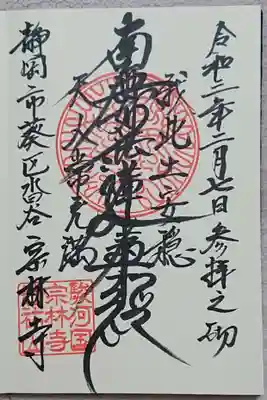 令和二年二月七日参拝之砌
我此土安穏
南無妙法蓮華経
天人常充満
静岡市葵区沓谷
宗林寺
駿河国
宗林寺